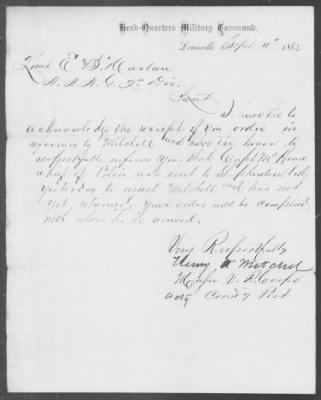 Head-Quarters Military Command.
Louisville Sept. 11th 1863.
Lieut E B. Harlan
A. A. A. G. 2d Div.
Lieut
I have the to
acknowledge the receipt of you order in
reference to Mitchell and have the honor to
respectfully inform you that Capt McKune
chief of Police was sent to
yesterday to arrest Mitchell and has not
yet returned your order will be complied
with when he is arrived.
Very Respectfully
Henry Mitchel
Major V. R. Corps
Comd'g Post